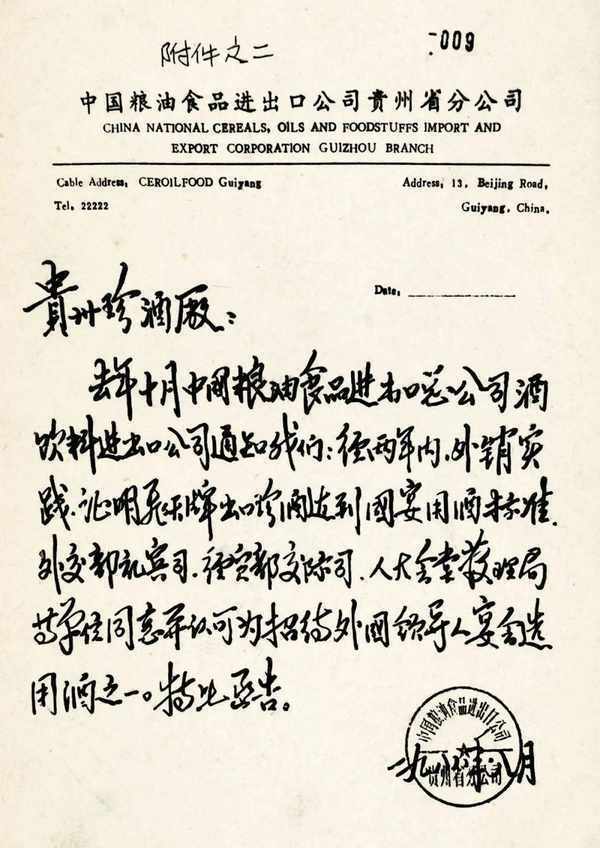 附件之二
-009
中国粮油食品进出口公司贵州省分公司
CHINA NATIONAL CEREALS, OILS AND FOODSTUFFS IMPORT AND
EXPORT CORPORATION GUIZHOU BRANCH
Cable Address: CEROILFOOD Guiyang
Address: 13, Beijing Road,
Tel. 22222
Guiyang, China.
Date:
貴州珍酒厰:
去年十月中国粮油食品进出口总公司酒
饮料进出口公司通知我们:经两年内、外销实
践、证明飞天牌出口珍酒达到國宴用酒标准.
外交部礼宾司、经贸部交际司、人大会堂管理局
等单位同意并认可为招待外國领导人宴会选
用酒之一。特此函告。
中国粮油食品进出口公司
贵州省分公司
一九八 年八月